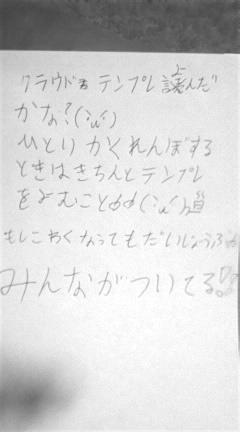 クラウド君 テンプレ読んだ
かな?(;´ω`)
ひとりかくれんぼする
ときはきちんとテンプレ
をよむことめめ(;´ω`)
もしこわくなってもだいじょうぶ
みんながついてる!